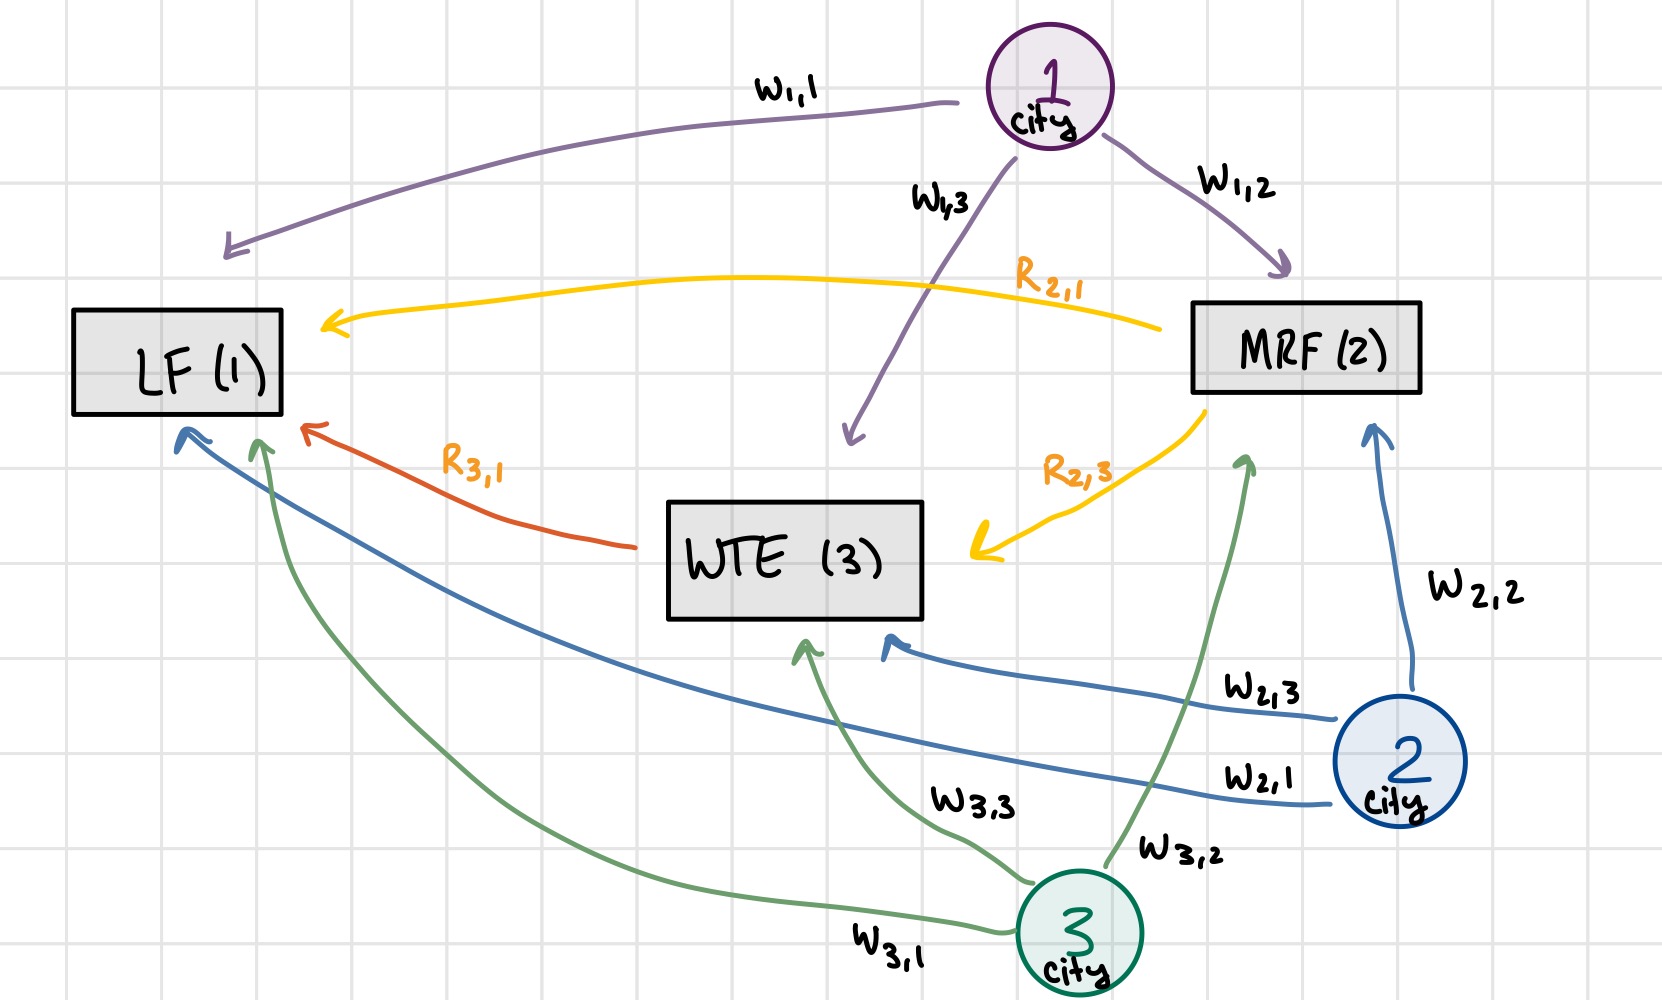 1
city
W1,1
W1,2
W1,3
R2,1
LF (1)
MRF (2)
R3,1
R2,3
WTE (3)
W2,2
W2,3
W2,1
2
city
W3,3
W3,2
W3,1
3
city